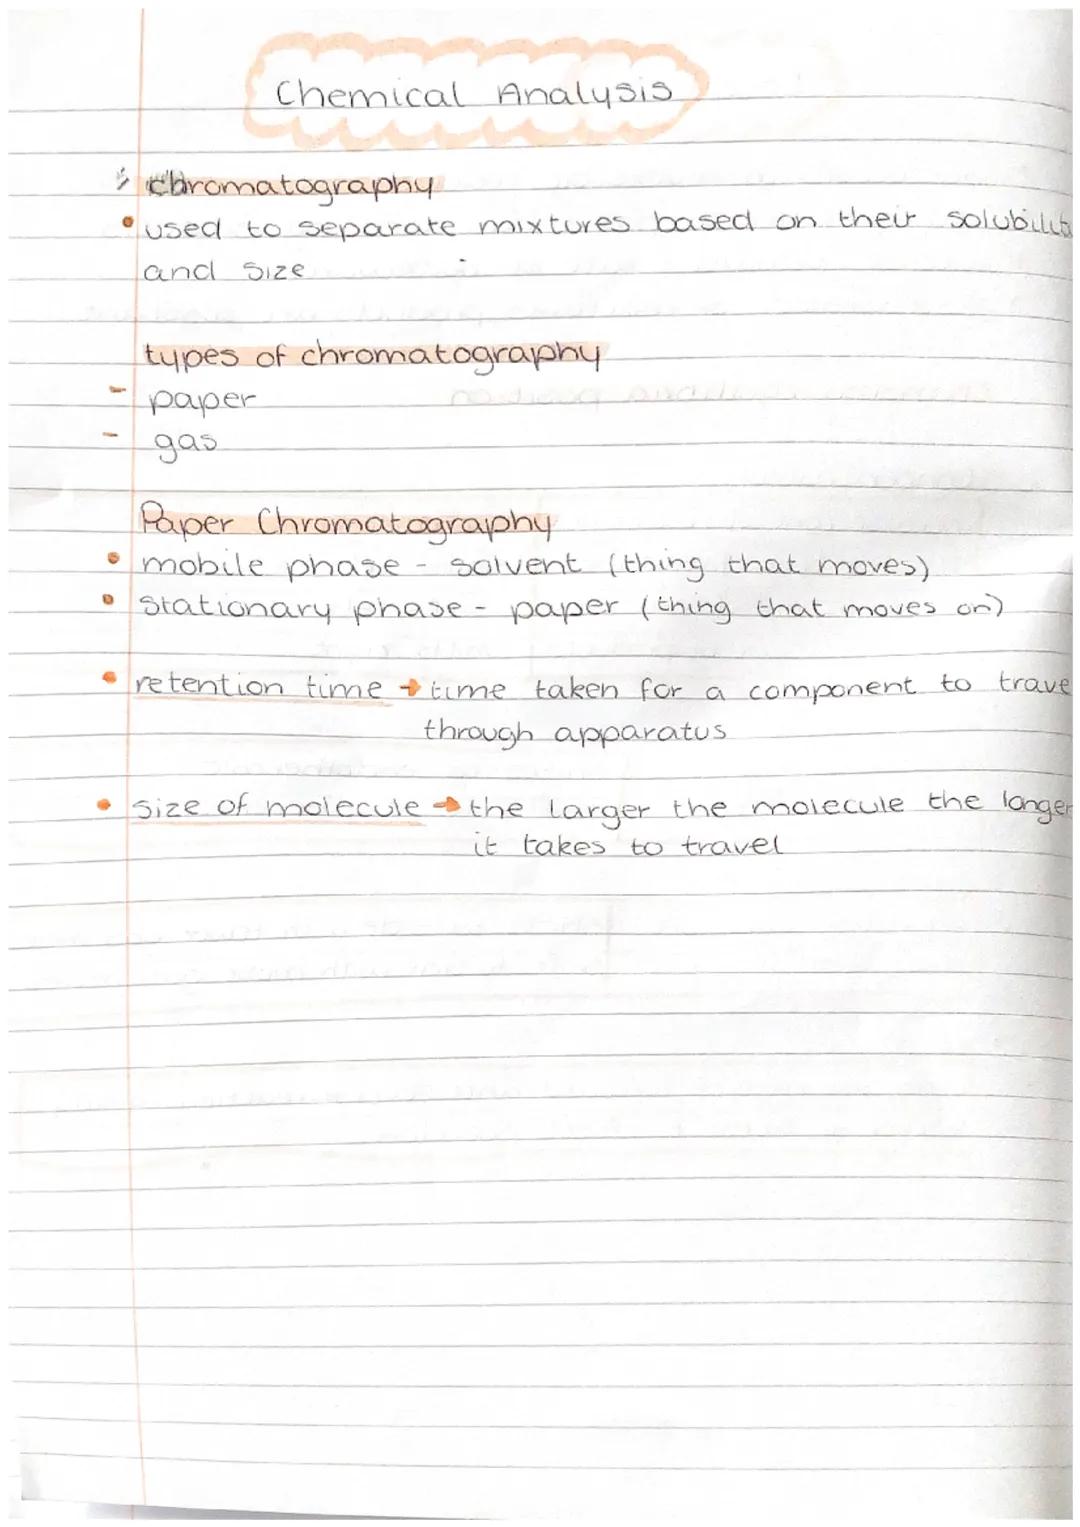 Chemical Analysis
chromatography
• used to separate mixtures based on their solubilit
and size
types of chromatography
- paper
- gas
Paper Chromatography
• mobile phase - solvent (thing that moves)
• stationary phase - paper (thing that moves on)
• retention time → time taken for a component to trave
through apparatus
• size of molecule → the larger the molecule the longer
it takes to travel